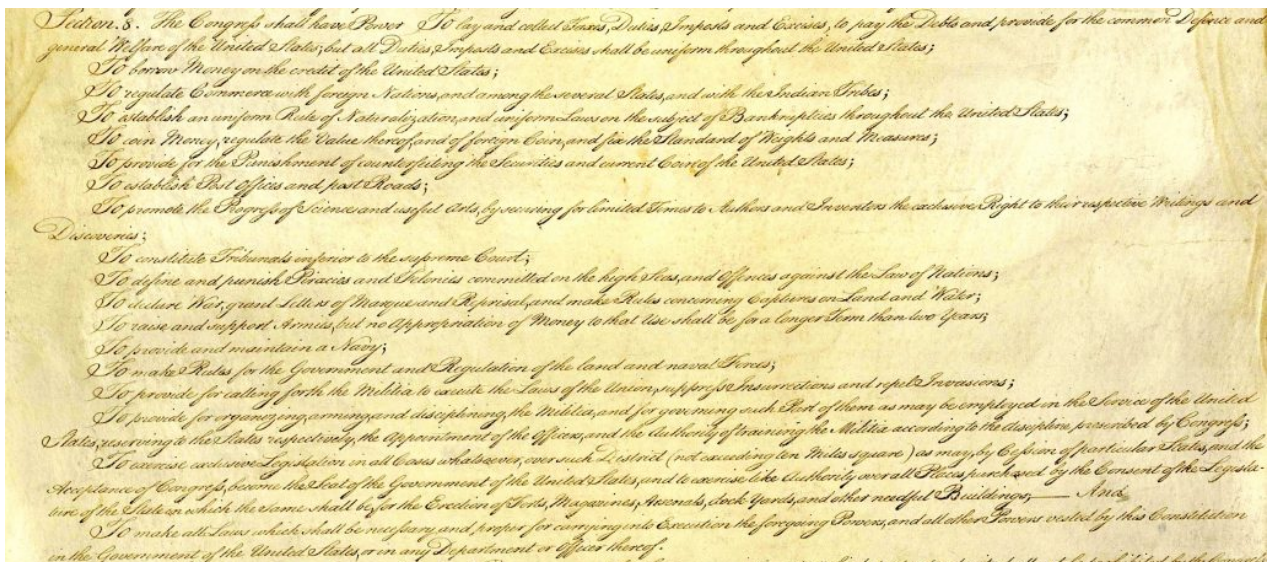 Section. 8. The Congress shall have Power To lay and collect Taxes, Duties, Imposts and Excises, to pay the Debts and provide for the common Defence and
general Welfare of the United States; but all Duties, Imposts and Excises shall be uniform throughout the United States;
To borrow Money on the credit of the United States;
To regulate Commerce with foreign Nations, and among the several States, and with the Indian Tribes;
To establish an uniform Rule of Naturalization, and uniform Laws on the subject of Bankruptcies throughout the United States;
To coin Money, regulate the Value thereof, and of foreign Coin, and fix the Standard of Weights and Measures;
To provide for the Punishment of counterfeiting the Securities and current Coin of the United States;
To establish Post Offices and post Roads;
To promote the Progress of Science and useful Arts, by securing for limited Times to Authors and Inventors the exclusive Right to their respective Writings and
Discoveries;
To constitute Tribunals inferior to the supreme Court;
To define and punish Piracies and Felonies committed on the high Seas, and Offences against the Law of Nations;
To declare War, grant Letters of Marque and Reprisal, and make Rules concerning Captures on Land and Water;
To raise and support Armies, but no Appropriation of Money to that Use shall be for a longer Term than two Years;
To provide and maintain a Navy;
To make Rules for the Government and Regulation of the land and naval Forces;
To provide for calling forth the Militia to execute the Laws of the Union, suppress Insurrections and repel Invasions;
To provide for organizing, arming, and disciplining, the Militia, and for governing such Part of them as may be employed in the Service of the United
States, reserving to the States respectively, the Appointment of the Officers, and the Authority of training the Militia according to the discipline prescribed by Congress;
To exercise exclusive Legislation in all Cases whatsoever, over such District (not exceeding ten Miles square) as may, by Cession of particular States, and the
Acceptance of Congress, become the Seat of the Government of the United States, and to exercise like Authority over all Places purchased by the Consent of the Legisla-
ture of the State in which the Same shall be, for the Erection of Forts, Magazines, Arsenals, dock-Yards, and other needful Buildings;— And
To make all Laws which shall be necessary and proper for carrying into Execution the foregoing Powers, and all other Powers vested by this Constitution
in the Government of the United States, or in any Department or Officer thereof.